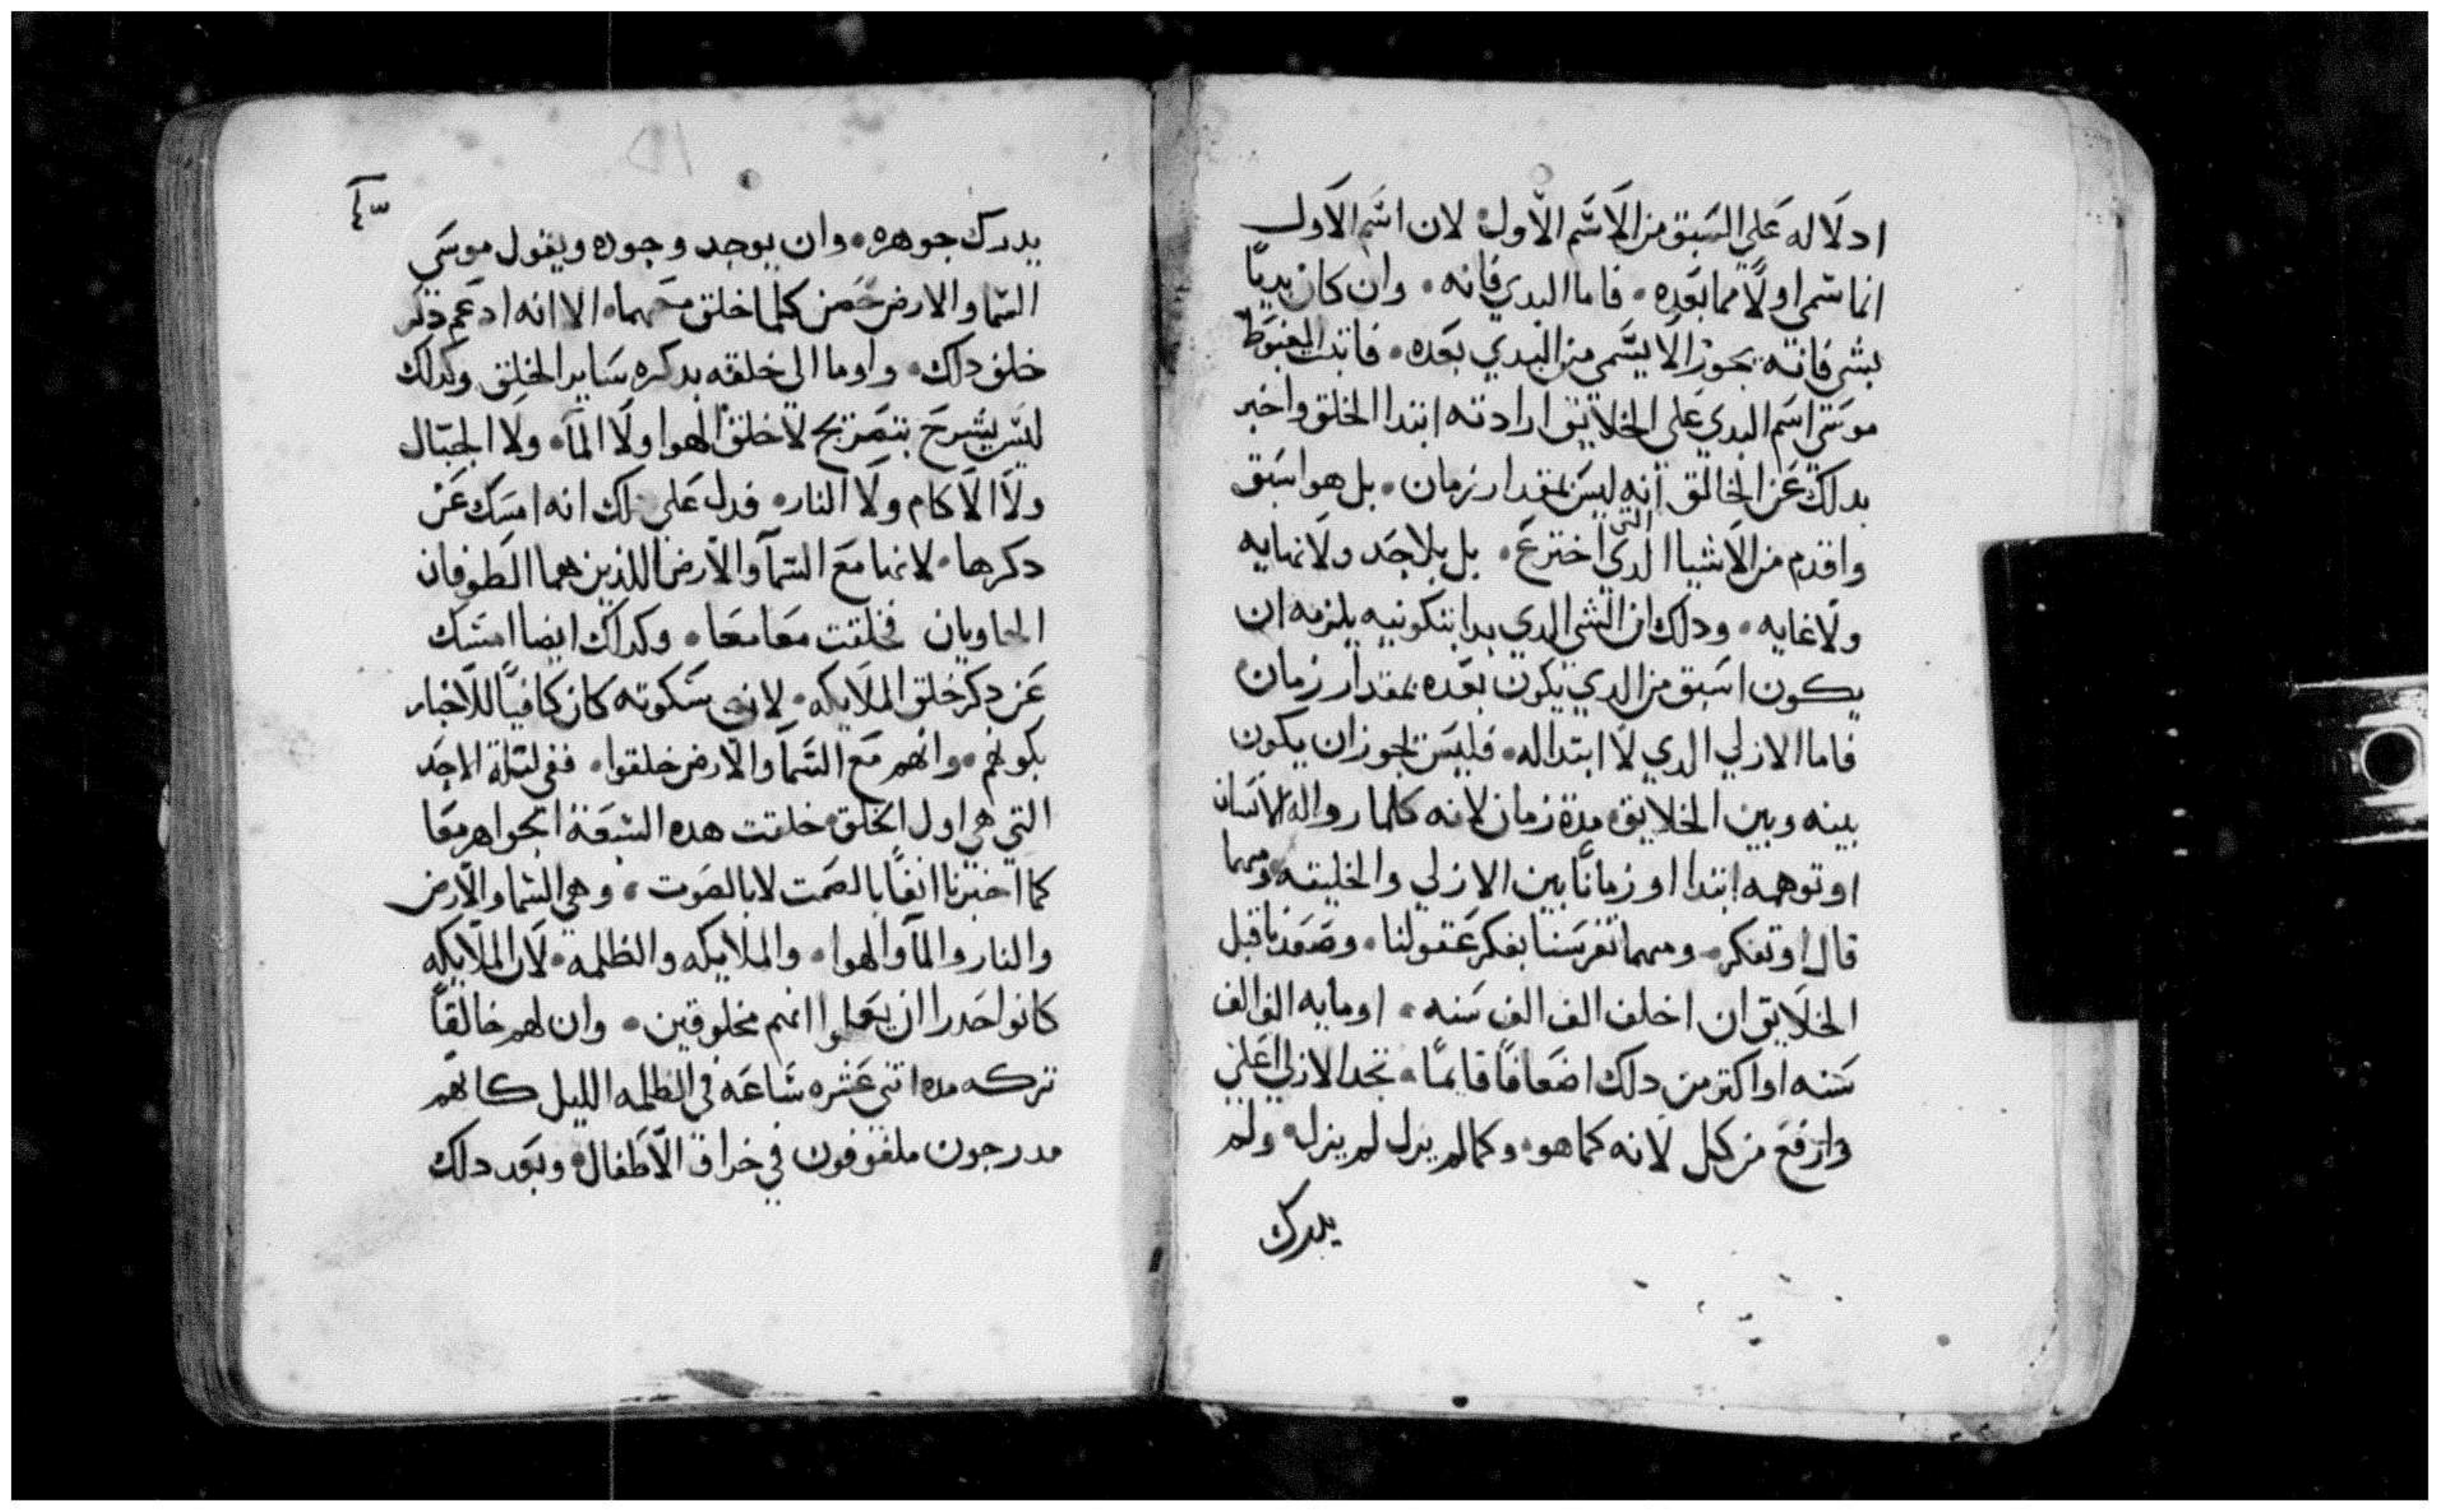 ادلاله علي السبق من الاسم الاول لان اسم الاول
انما سمي اولاً مما بعده • فاما البدي فانه • وان كان بدياً
بشي فانه يجوز الا يسمي من البدي بعده • فاتبت المغبوط
موسي اسم البدي علي الخلايق ارادته ابتدا الخلق واخبر
بدلك عن الخالق انه ليس بمقدار زمان • بل هو اسبق
واقدم من الاشيا الدي التي اخترع • بل بلا حد ولا نهايه
ولا غايه • ودلك ان الشي الدي بدا بتكونيه يلزمه ان
يكون اسبق من الدي يكون بعده بمقدار زمان
فاما الازلي الدي لا ابتدا له • فليس يجوز ان يكون
بينه وبين الخلايق مدة زمان لانه كلما رواله الانسان
او توهمه ابتدا او زماناً بين الازلي والخليقه ومهما
قال او تفكر • ومهما تفرسنا بفكر عقولنا • وصعدنا قبل
الخلايق ان اخلف الف الف سنه • او مايه الف الف
سنه او اكتر من دلك اضعافاً قايماً • نجد الازلي اعلي
وارفع من كل لانه كما هو • وكما لم يزل لم يزل • ولم
يدرك
يدرك جوهره • وان يوجد وجوده ويقول موسي
السما والارض كلما خلق • الا انه اد
خلق دلك • واوما الي خلقه بدكره ساير الخلق وكدلك
ليس يشرح بتصريح لا خلق الهوا ولا المآ • ولا الجبال
ولا الاكام ولا النار • فدل علي دلك انه امسك عن
دكرها • لانها مع السمآ والارض اللذين هما الطوفان
الحاويان فخلقت معاً معا • وكدلك ايضا امسك
عن دكر خلق الملايكه • لان سكوته كان كافياً للاخبار
بكونهم • وانهم مع السمآ والارض خلقوا • ففي ليلة الاحد
التي هي اول الخلق خلقت هده السبعة الجواهر معا
كما اخبرنا انفاً بالصمت لا بالصوت • وهي السما والارض
والنار والمآ والهوا • والملايكه والظلمه • لان الملايكه
كانوا احدرا ان يعلموا انهم مخلوقين • وان لهم خالقاً
تركه مده اتني عشره ساعه في الظلمه الليل كانهم
مدرجون ملفوفون في خراق الاطفال • وبعد دلك